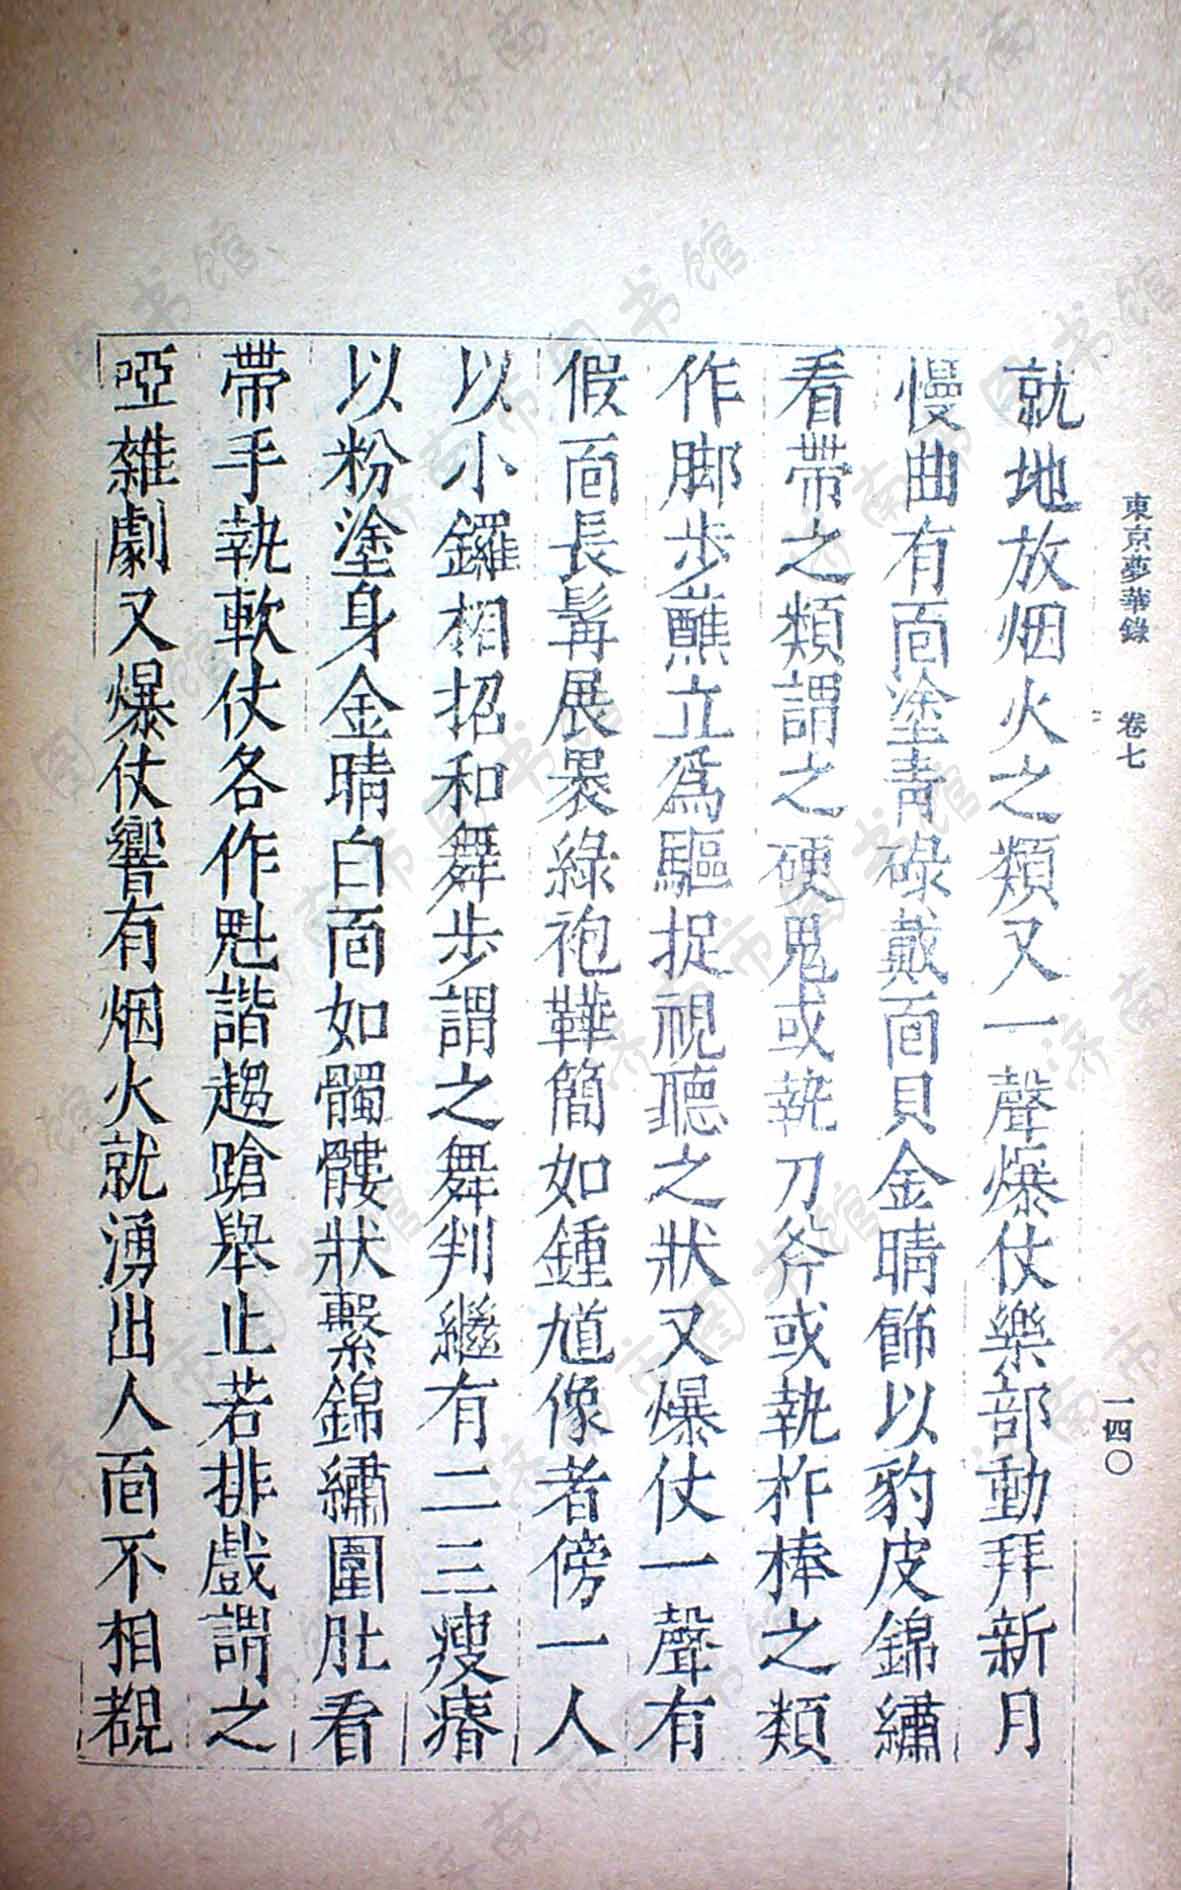 東京夢華錄 卷七 一四〇
就地放烟火之類又一聲爆仗樂部動拜新月
慢曲有面塗青碌戴面貝金睛飾以豹皮錦繡
看帶之類謂之硬鬼或執刀斧或執杵棒之類
作脚步蘸立為驅捉視聽之狀又爆仗一聲有
假面長髯展裹綠袍鞾簡如鍾馗像者傍一人
以小鑼相招和舞步謂之舞判繼有二三瘦瘠
以粉塗身金睛白面如髑髏狀繫錦繡圍肚看
帶手執軟仗各作魁諧趨蹌舉止若排戲謂之
啞雜劇又爆仗響有烟火就湧出人面不相覩
济南市图书馆